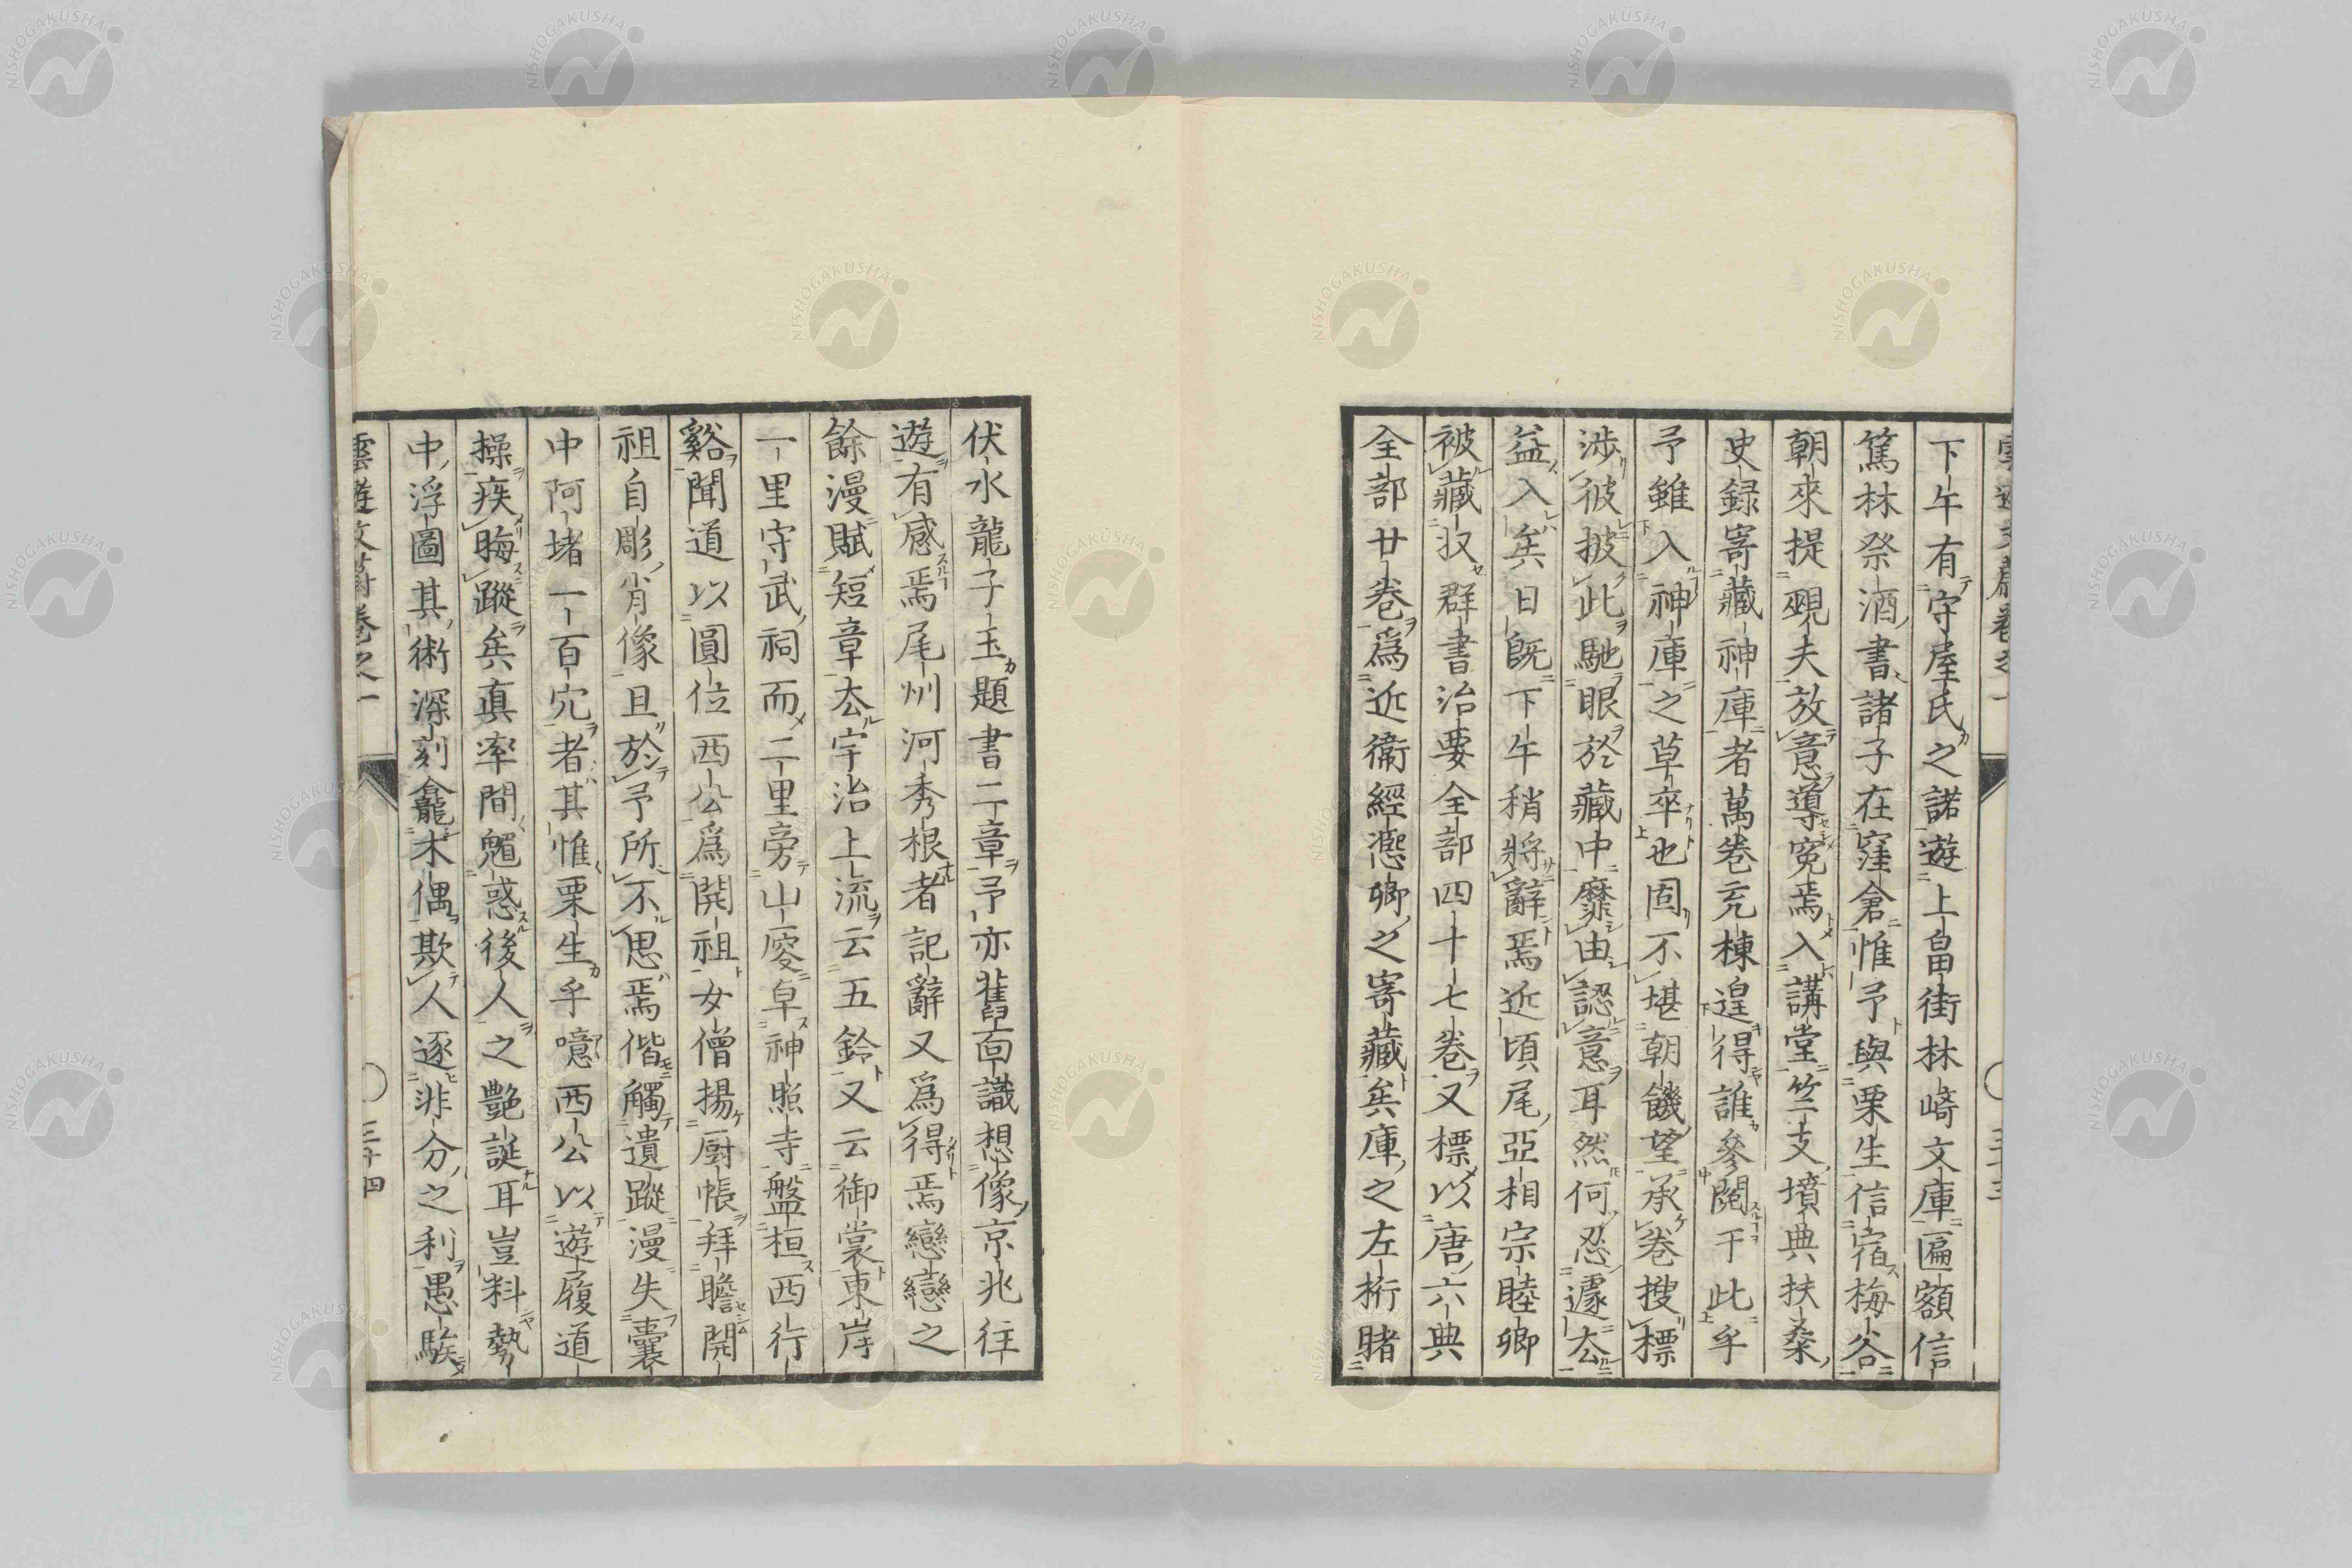 下午有守屋氏之諾遊上畠街林崎文庫匾額信
篤林祭酒書諸子在窪倉惟予與栗生信宿梅谷
朝來提覡夫放意導寃焉入講堂竺支墳典扶桑
史録寄藏神庫者萬卷充棟遑得誰參閲于此乎
予雖入神庫之草卒也固不堪朝饑望承卷搜標
涉彼披此馳眼於藏中靡由認意耳然何忍遽厺
益入矣日既下午稍將辭焉近頃尾亞相宗睦卿
被藏収群書治要全部四十七卷又標以唐六典
全部廿卷爲近衞經凞卿之寄藏矣庫之左桁睹
伏水龍子玉題書二章予亦舊面識想像京兆往
遊有感焉尾州河秀根者記辭又爲得焉戀戀之
餘漫賦短章厺宇治上流云五鈴又云御裳東岸
一里守武祠而二里旁山一
廋皁神照寺盤桓西行
谿聞道以圓位西公爲開祖女僧揚厨帳拜瞻開
祖自彫肖像且於予所不思焉偕觸遺蹤漫失囊
中阿堵一百宂者其惟栗生乎噫西公以遊履道
操疾晦蹤矣真率間魍惑後人之艶誕耳豈料勢
中浮圖其術深刻龕木偶欺人逐非分之利愚騃
雲遊文蔚卷之一
三十四